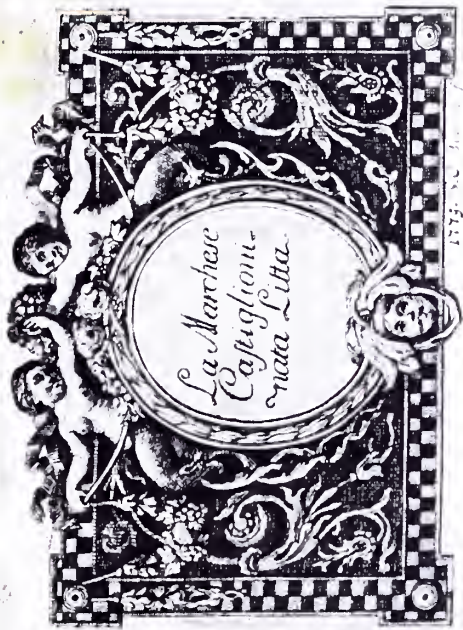 La Marchese
Caſtiglioni.
nata Litta.